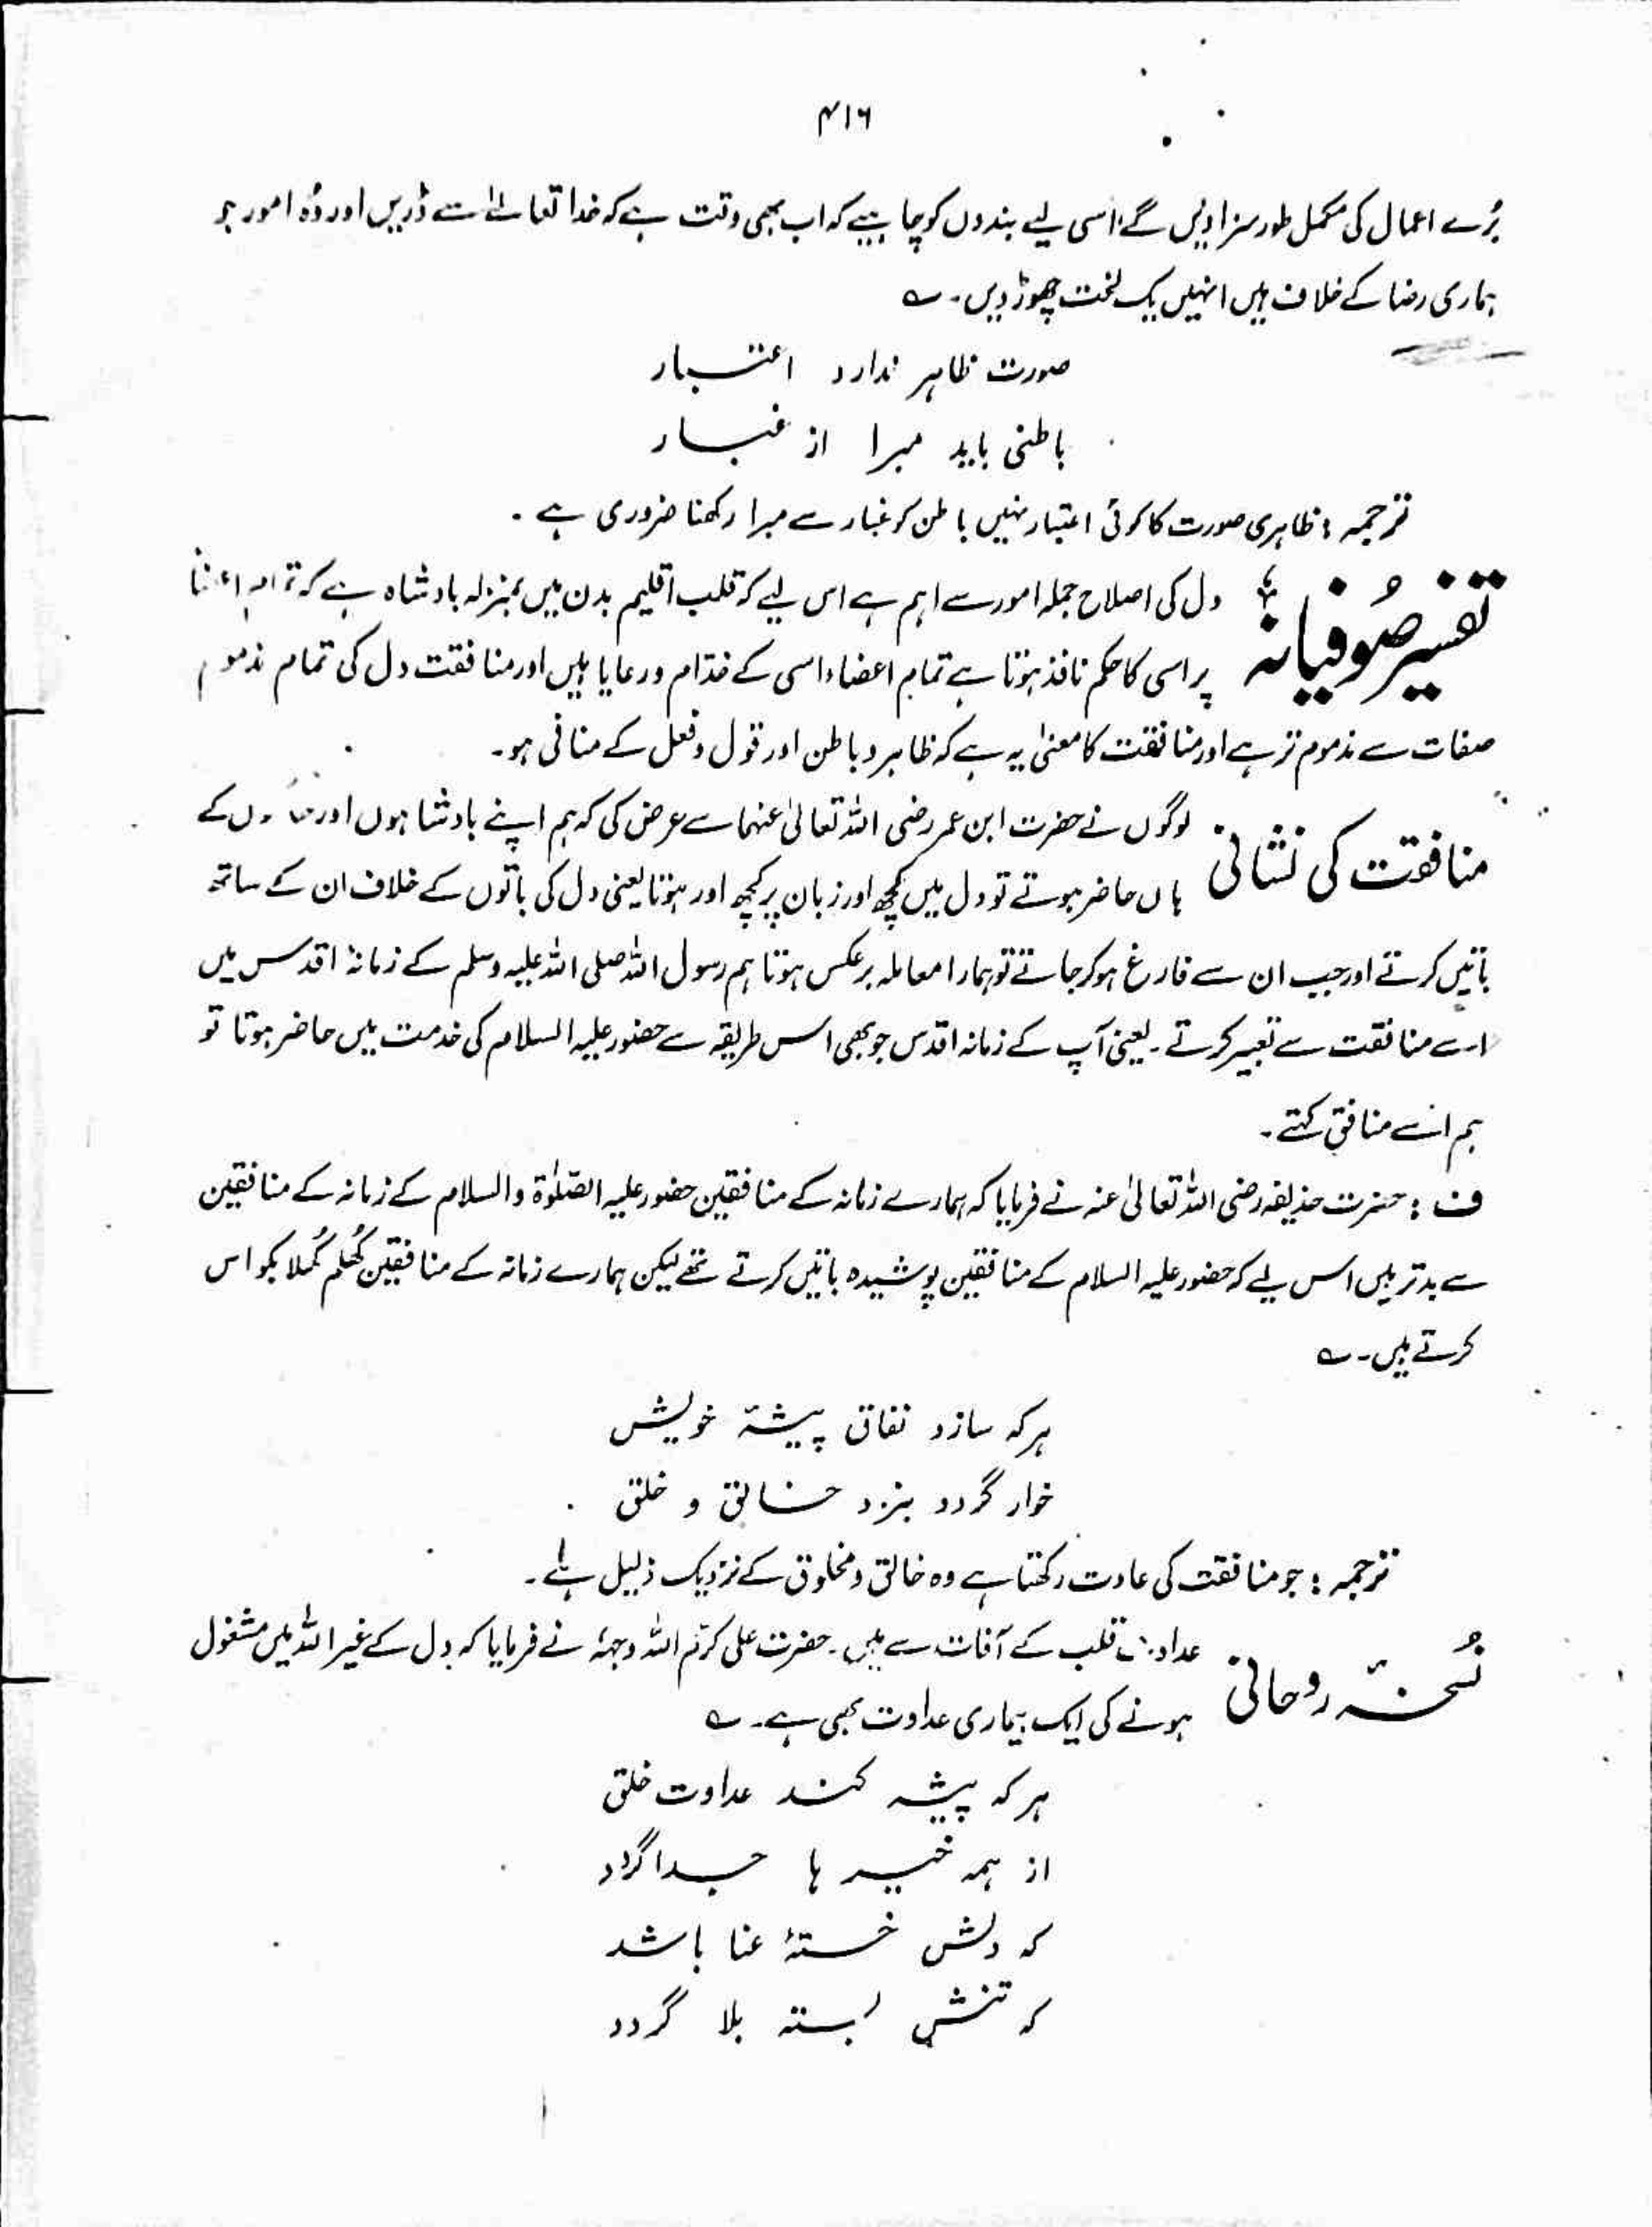 ۴۱۶
بُرے اعمال کی مکمل طور سزا دیں گے اسی لیے بندوں کو چاہیے کہ اب بھی وقت ہے کہ خدا تعالےٰ سے ڈریں اور وُہ امور جو
ہماری رضا کے خلاف ہیں انہیں یک لخت چھوڑ دیں۔ ؎
صورت ظاہر ندارد اعتبار
باطنی باید مبرا از غبار
ترجمہ : ظاہری صورت کا کوئی اعتبار نہیں باطن کو غبار سے مبرا رکھنا ضروری ہے ۔
تفسیر صُوفیانہ دل کی اصلاح جملہ امور سے اہم ہے اس لیے کہ قلب اقلیم بدن میں بمنزلہ بادشاہ ہے کہ تمام اعضا
پر اسی کا حکم نافذ ہوتا ہے تمام اعضاء اسی کے خدام ورعایا ہیں اور منافقت دل کی تمام مذموم
صفات سے مذموم تر ہے اور منافقت کا معنیٰ یہ ہے کہ ظاہر و باطن اور قول و فعل کے منافی ہو۔
منافقت کی نشانی لوگوں نے حضرت ابن عمر رضی اللہ تعالیٰ عنہما سے عرض کی کہ ہم اپنے بادشاہوں اور کے
ہاں حاضر ہوتے تو دل میں کچھ اور زبان پر کچھ اور ہوتا یعنی دل کی باتوں کے خلاف ان کے ساتھ
باتیں کرتے اور جب ان سے فارغ ہو کر جاتے تو ہمارا معاملہ برعکس ہوتا ہم رسول اللہ صلی اللہ علیہ وسلم کے زمانۂ اقدس میں
اسے منافقت سے تعبیر کرتے۔ یعنی آپ کے زمانہ اقدس جو بھی اس طریقہ سے حضور علیہ السلام کی خدمت میں حاضر ہوتا تو
ہم اسے منافق کہتے۔
ف : حضرت حذیفہ رضی اللہ تعالیٰ عنہ نے فرمایا کہ ہمارے زمانہ کے منافقین حضور علیہ الصّلوٰۃ والسلام کے زمانہ کے منافقین
سے بدتر ہیں اس لیے کہ حضور علیہ السلام کے منافقین پوشیدہ باتیں کرتے تھے لیکن ہمارے زمانہ کے منافقین کُھلم کُھلا بکواس
کرتے ہیں۔ ؎
ہر کہ سازد نفاق پیشۂ خویش
خوار گردد بنزد خالق و خلق
ترجمہ : جو منافقت کی عادت رکھتا ہے وہ خالق و مخلوق کے نزدیک ذلیل ہے۔
نُسخہ روحانی عداوت قلب کے آفات سے ہیں۔ حضرت علی کرّم اللہ وجہہٗ نے فرمایا کہ دل کے غیر اللہ میں مشغول
ہونے کی ایک بیماری عداوت بھی ہے۔ ؎
ہر کہ پیشہ کند عداوت خلق
از ہمہ خیر ہا جدا گردد
کہ دلش خستۂ عنا باشد
کہ تنش بستہ بلا گردد